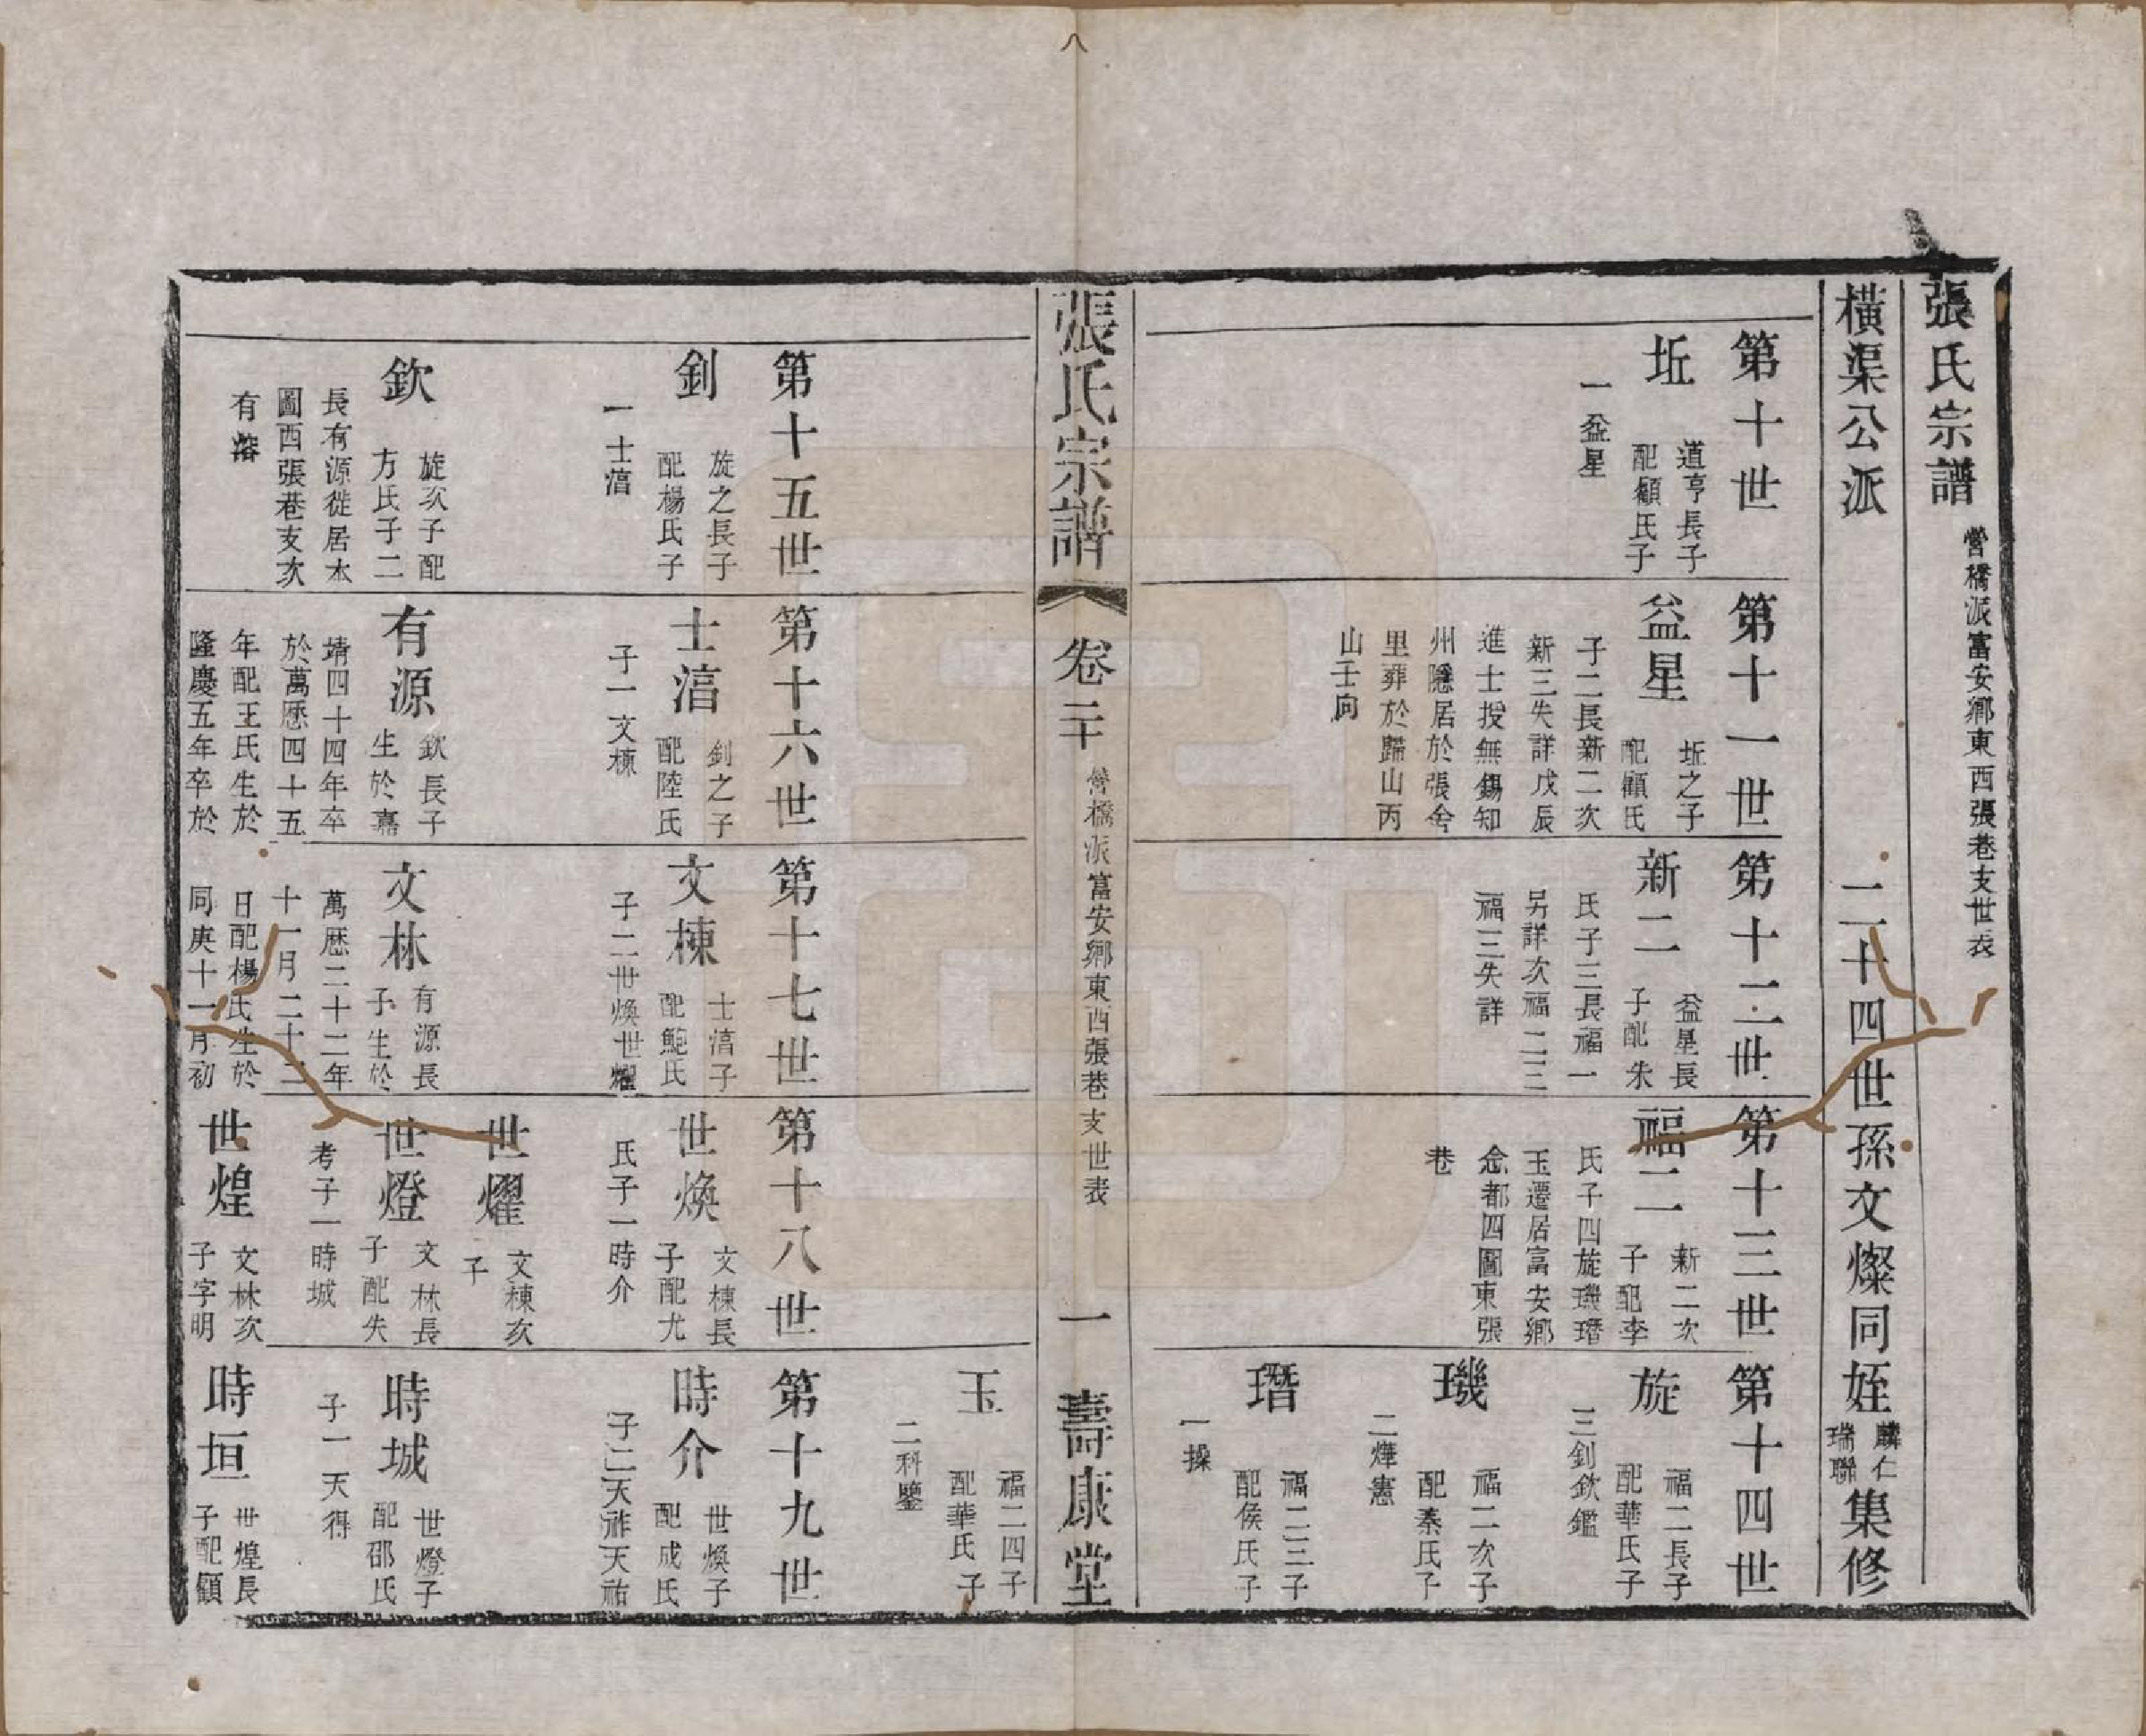 張氏宗譜 營橋派富安鄉東西張巷支世表
橫渠公派 二十四世孫文燦同姪麟仁瑞聯集修
第十世
坵 道亨長子
配顧氏子
一益星
第十一世
益星 坵之子
配顧氏
子二長新二次
新三失詳戊辰
進士授無錫知
州隱居於張舍
里葬於歸山丙
山壬向
第十二世
新二 益星長
子配朱
氏子三長福一
另詳次福二三
福三失詳
第十三世
福二 新二次
子配李
氏子四旋璣瑨
玉遷居富安鄉
念都四圖東張
巷
第十四世
旋 福二長子
配華氏子
三釗欽鑑
璣 福二次子
配秦氏子
二燁憲
瑨 福二三子
配侯氏子
一操
玉 福二四子
配華氏子
二科鑒
張氏宗譜 卷二十 營橋派富安鄉東西張巷支世表 一 壽康堂
第十五世
釗 旋之長子
配楊氏子
一士湻
欽 旋次子配
方氏子二
長有源徙居本
圖西張巷支次
有濬
第十六世
士湻 釗之子
配陸氏
子一文棟
有源 欽長子
生於嘉
靖四十四年卒
於萬歷四十五
年配王氏生於
隆慶五年卒於
第十七世
文棟 士湻子
配鮑氏
子二世煥世燿
文林 有源長
子生於
萬歷二十二年
十一月二十二
日配楊氏生於
同庚十一月初
第十八世
世煥 文棟長
子配尤
氏子一時介
世燿 文棟次
子
世燈 文林長
子配失
考子一時城
世煌 文林次
子字明
第十九世
時介 世煥子
配成氏
子二天祚天祐
時城 世燈子
配邵氏
子一天得
時垣 世煌長
子配顧